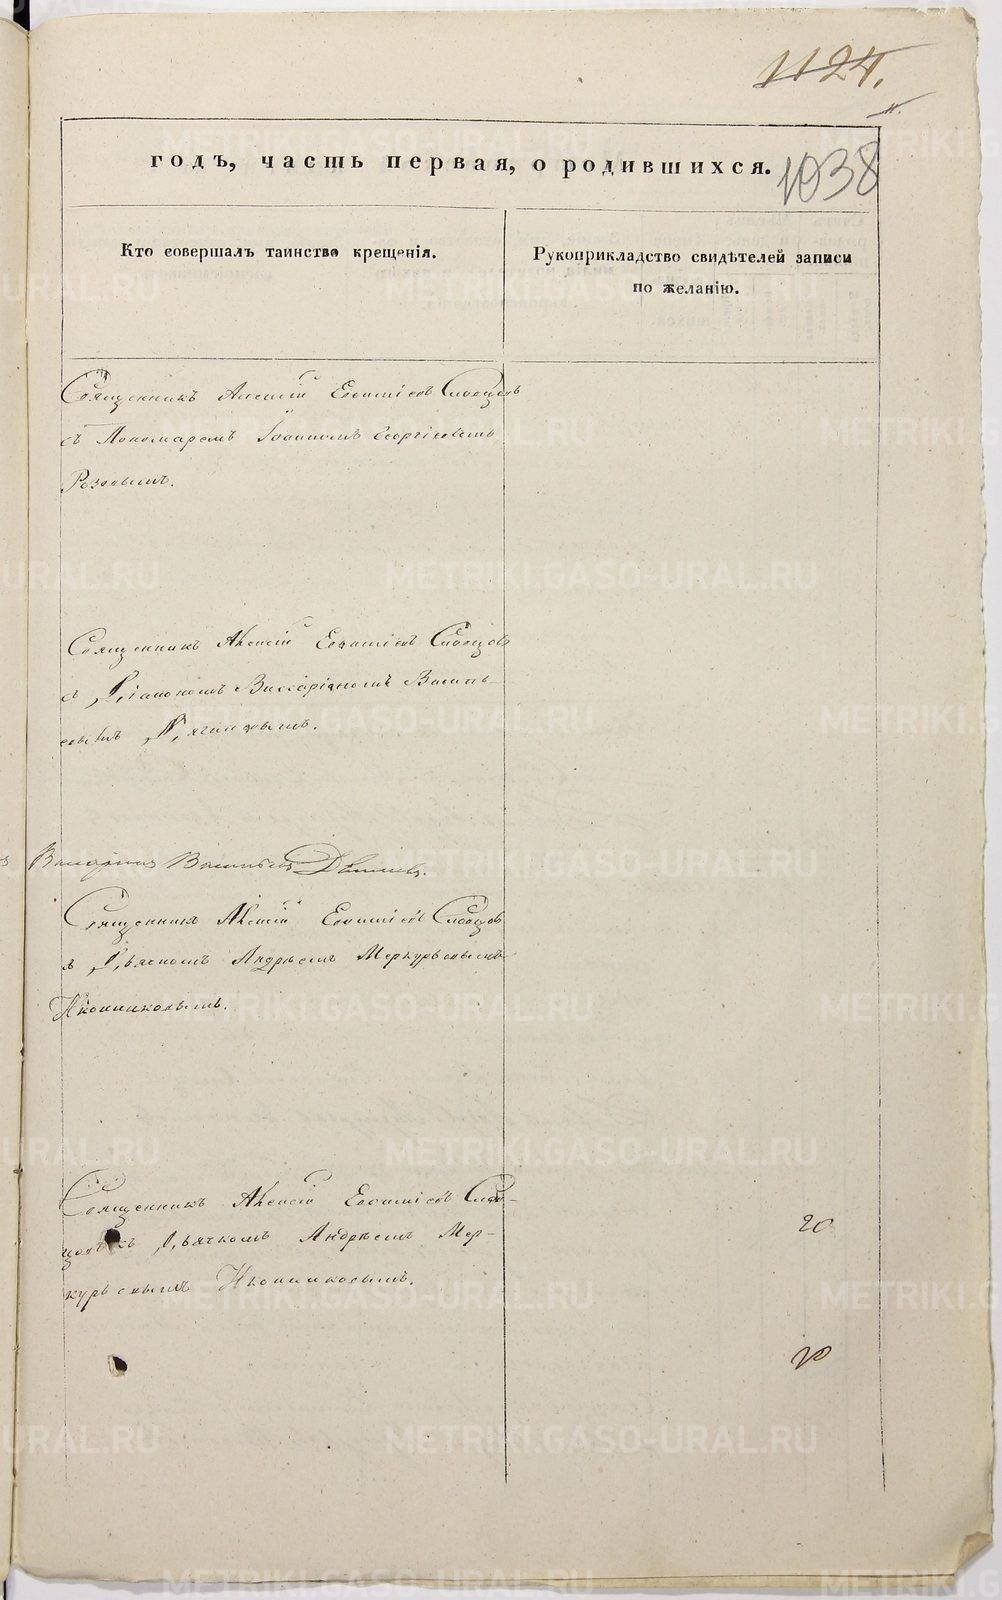 1124.
годъ, часть первая, о родившихся.
1038
Кто совершалъ таинство крещенія.
Рукоприкладство свидѣтелей записи
по желанію.
Священникъ Алексій Евфиміевъ Словцовъ
съ Пономаремъ Іоанномъ Георгіевымъ
Розовымъ.
Священникъ Алексій Евфиміевъ Словцовъ
съ Діакономъ Виссаріономъ Василь-
евымъ Дягилевымъ.
Васильевъ
Священникъ Алексій Евфиміевъ Словцовъ
съ Дьячкомъ Андреемъ Меркурьевымъ
Иконниковымъ.
Священникъ Алексій Евфиміевъ Слов-
цовъ съ Дьячкомъ Андреемъ Мер-
курьевымъ Иконниковымъ.
20
20
METRIKI.GASO-URAL.RU